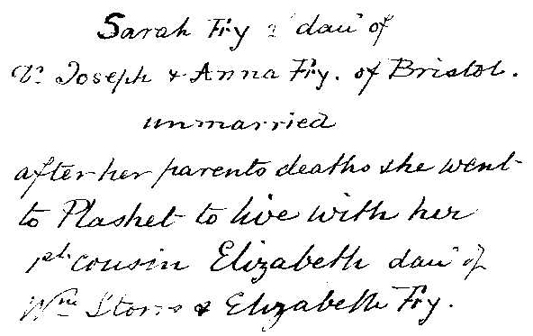 Sarah Fry 2d dau of
Dr Joseph & Anna Fry. of Bristol.
unmarried
after her parents deaths she went
to Plashet to live with her
1st cousin Elizabeth dau of
Wm Storrs & Elizabeth Fry.